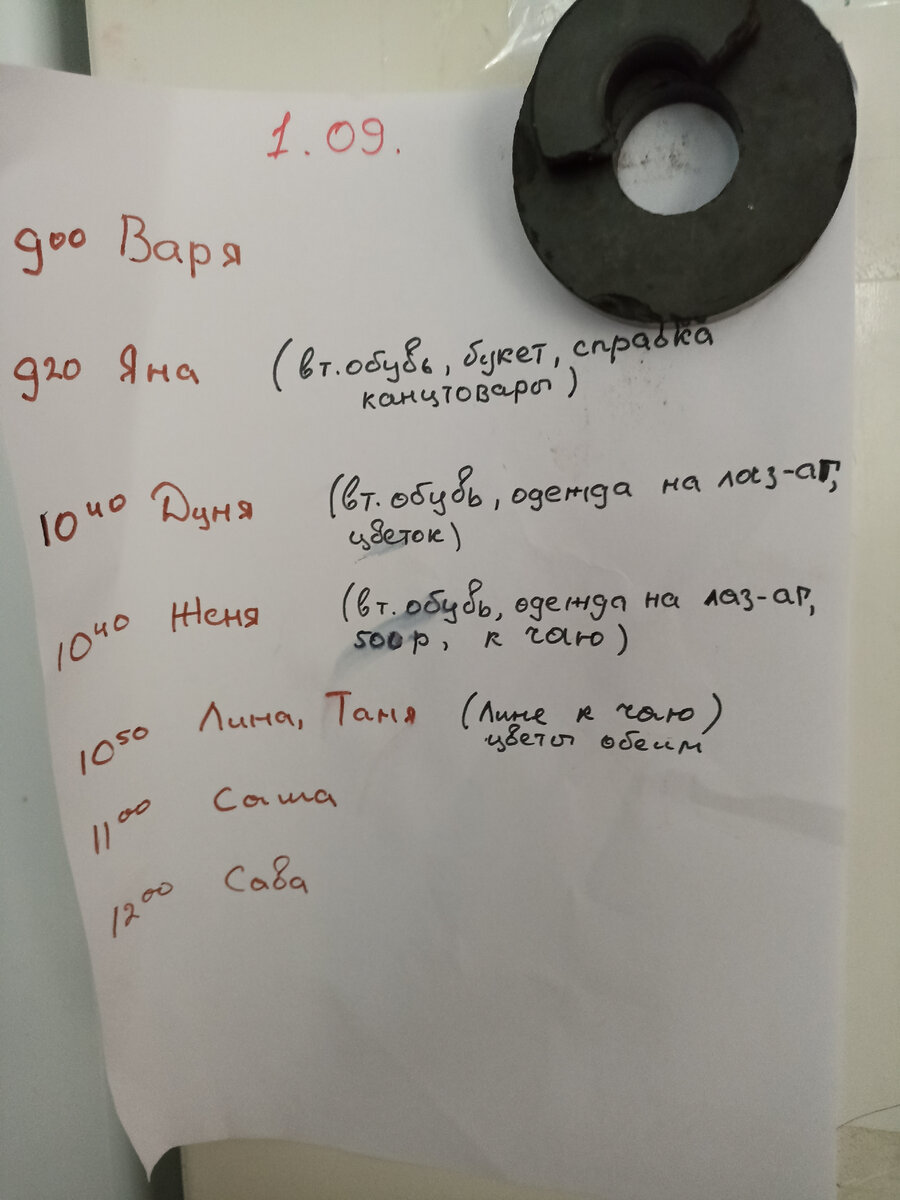 1.09.
9⁰⁰ Варя
9²⁰ Яна (вт. обувь, букет, справка
канцтовары)
10⁴⁰ Дуня (вт. обувь, одежда на лаз-аг,
цветок)
10⁴⁰ Женя (вт. обувь, одежда на лаз-аг,
500 р, к чаю)
10⁵⁰ Лина, Таня (Лине к чаю)
цветы обеим
11⁰⁰ Саша
12⁰⁰ Сава